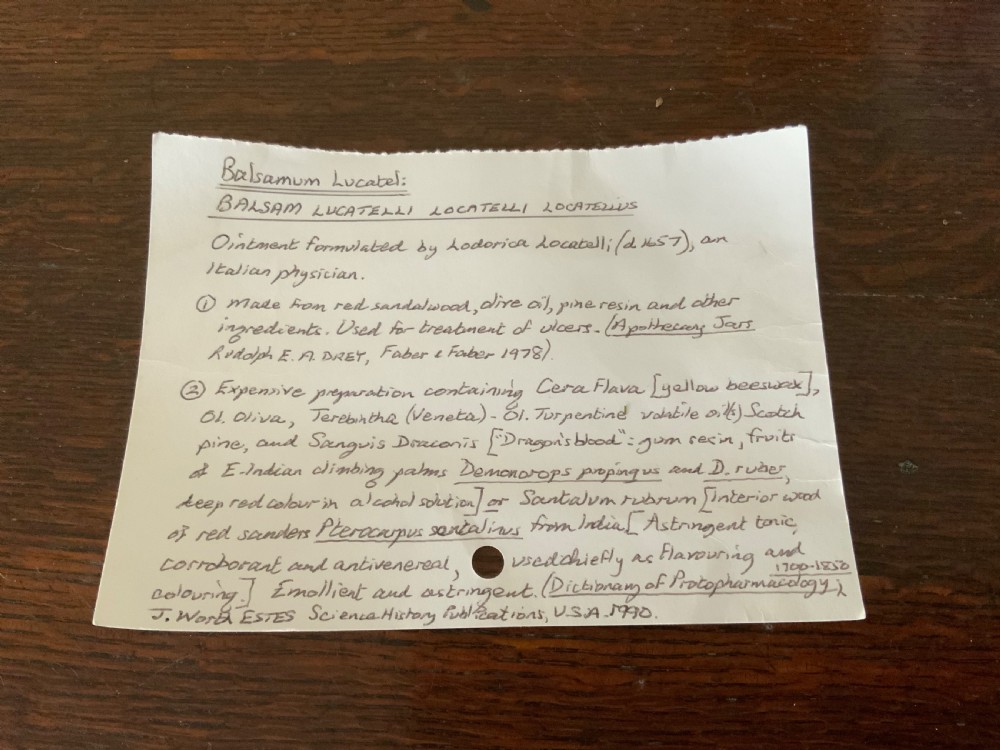 Balsamum Lucatel:
BALSAM LUCATELLI LOCATELLI LOCATELLUS
Ointment formulated by Lodorica Locatelli (d 1657), an
Italian physician.
① Made from red sandalwood, olive oil, pine resin and other
ingredients. Used for treatment of ulcers. (Apothecary Jars
Rudolph E. A. DREY, Faber & Faber 1978).
② Expensive preparation containing Cera Flava [yellow beeswax],
Ol. Oliva, Terebintha (Veneta) - Ol. Turpentine volatile oil(s) Scotch
pine, and Sanguis Draconis ["Dragon's blood": gum resin, fruits
of E. Indian climbing palms Demonorops propingus and D. ruber,
deep red colour in alcohol solution] or Santalum rubrum [Interior wood
of red sanders Pterocarpus santalinus from India [Astringent tonic,
corroborant and antivenereal, used chiefly as flavouring and
colouring.] Emollient and astringent. (Dictionary of Protopharmacology 1700-1850),
J. Worth ESTES Science History Publications, U.S.A. 1990.